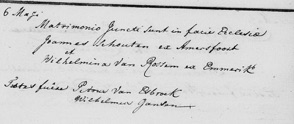 6 Maji
Matrimonio Juncti sunt in facie Eclesiæ
Joannes Schouten ex Amersfoort
et
Wilhelmina Van Rossem ex Emmerik
Testes fuere Petrus van Esbroek
Wilhelmus Jansen